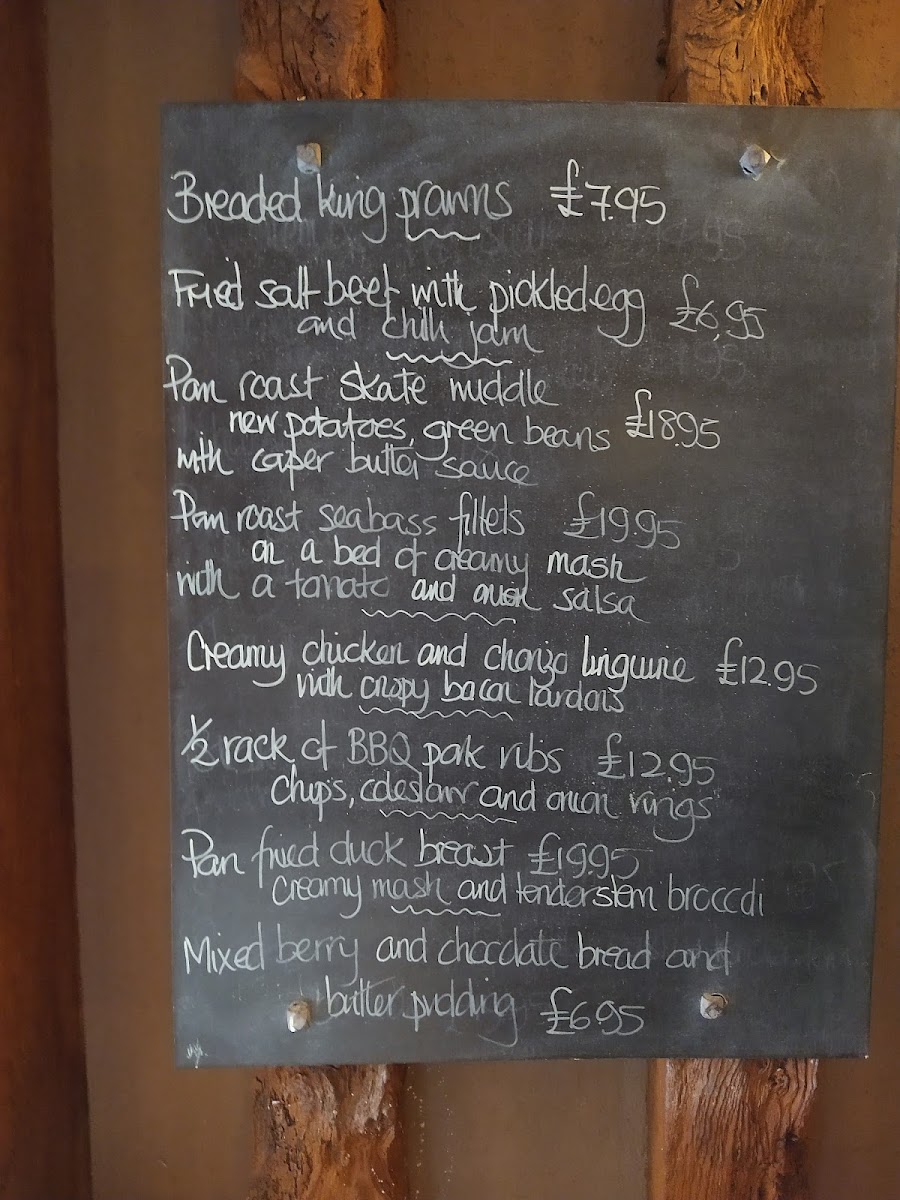 Breaded king prawns £7.95
Fried salt beef with pickled egg £6.95
and chilli jam
Pan roast skate middle
new potatoes, green beans £18.95
with caper butter sauce
Pan roast seabass fillets £19.95
on a bed of creamy mash
with a tomato and onion salsa
Creamy chicken and chorizo linguine £12.95
with crispy bacon lardons
1/2 rack of BBQ pork ribs £12.95
Chips, coleslaw and onion rings
Pan fried duck breast £19.95
Creamy mash and tenderstem broccoli
Mixed berry and chocolate bread and
butter pudding £6.95